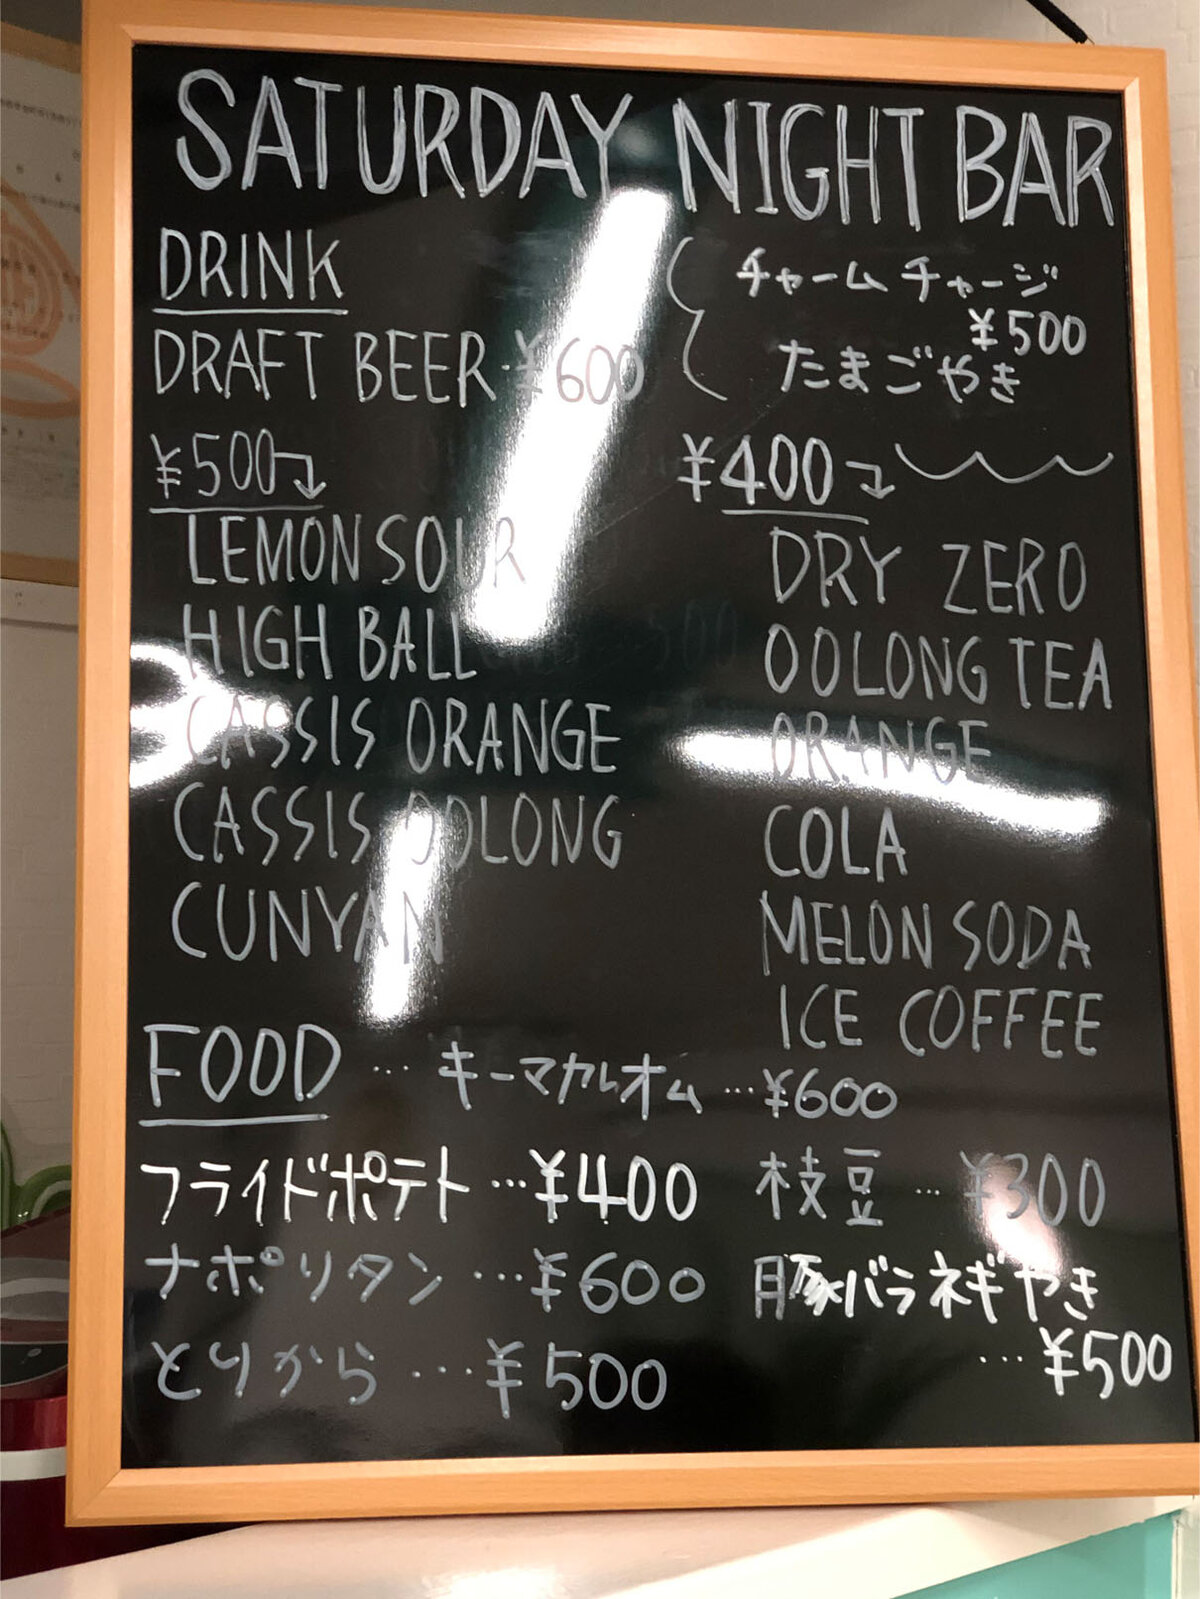 SATURDAY NIGHT BAR
DRINK
DRAFT BEER・¥600
チャームチャージ
¥500
たまごやき
¥500
LEMON SOUR
HIGH BALL
CASSIS ORANGE
CASSIS OOLONG
CUNYAN
¥400
DRY ZERO
OOLONG TEA
ORANGE
COLA
MELON SODA
ICE COFFEE
FOOD … キーマカレオム … ¥600
フライドポテト … ¥400
枝豆 … ¥300
ナポリタン … ¥600
豚バラネギやき
… ¥500
とりから … ¥500